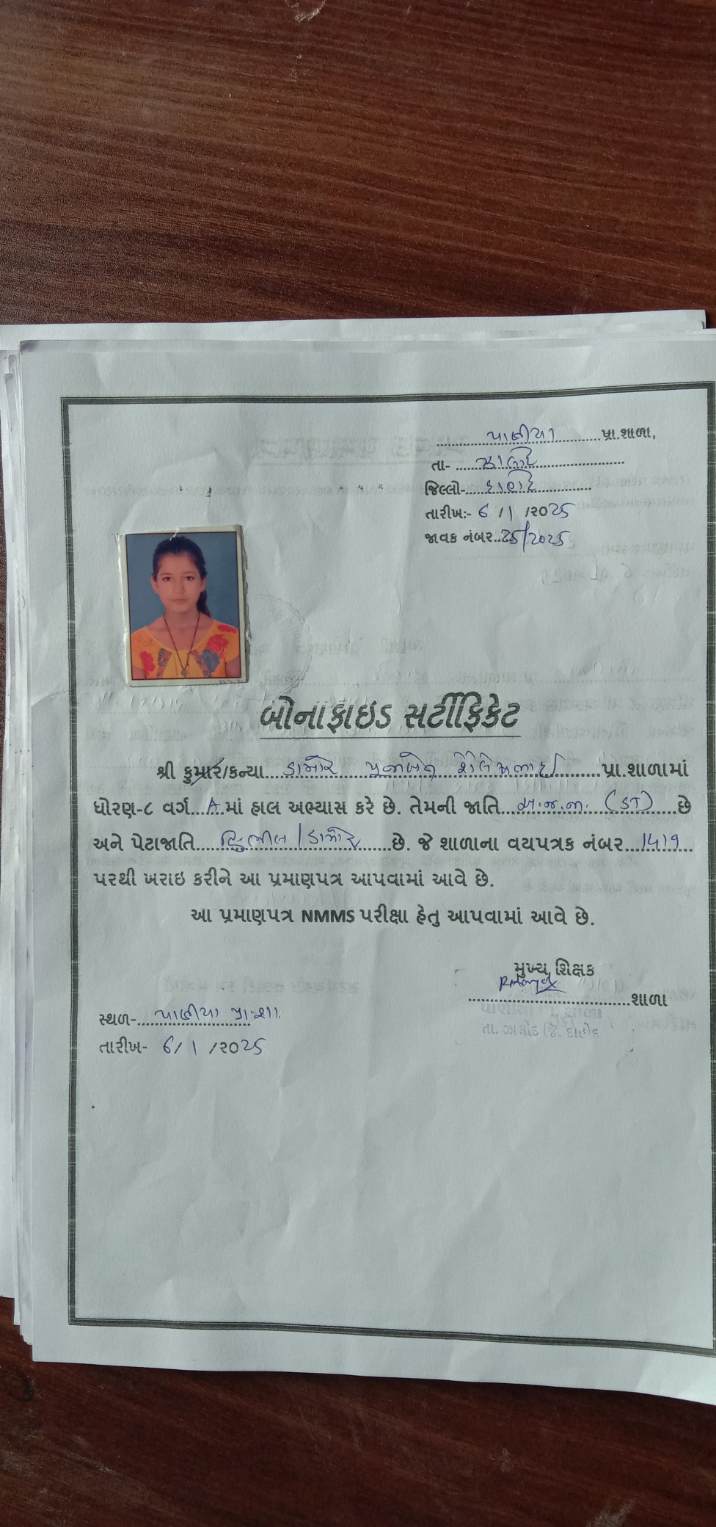 પાણીયા પ્રા.શાળા,
તા- ઝાલોદ
જિલ્લો- દાહોદ
તારીખ:- 6/1/2025
જાવક નંબર..25/2025
બોનાફાઇડ સર્ટીફિકેટ
શ્રી કુમાર/કન્યા...ડામોર પુનમબેન શૈલેષભાઈ...પ્રા.શાળામાં
ધોરણ-૮ વર્ગ...A.માં હાલ અભ્યાસ કરે છે. તેમની જાતિ...અ.જ.જા. (ST)...છે
અને પેટાજાતિ...હિન્દુ ભીલ / ડામોર...છે. જે શાળાના વયપત્રક નંબર...1419...
પરથી ખરાઇ કરીને આ પ્રમાણપત્ર આપવામાં આવે છે.
આ પ્રમાણપત્ર NMMS પરીક્ષા હેતુ આપવામાં આવે છે.
મુખ્ય શિક્ષક
શાળા
સ્થળ- પાણીયા પ્રા.શા.
તા. ઝાલોદ જિ. દાહોદ
તારીખ- 6/1/2025